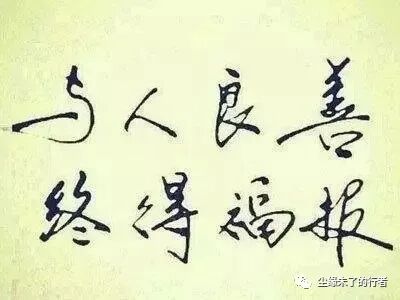 与人良善
终得福报
尘缘未了的行者